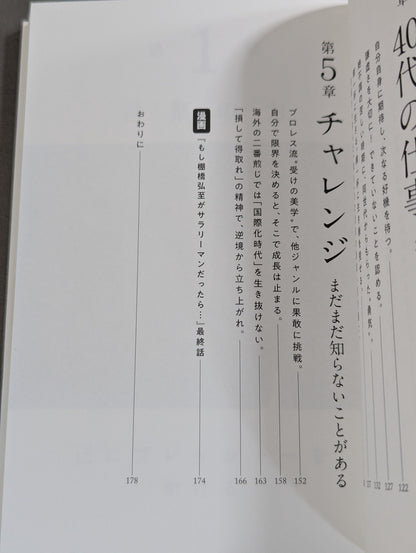 40代の仕事
自分自身に期待し、次なる好機を待つ。 122
謙虚さを大切に！できていないことを認める。 127
132
137
第5章 チャレンジ まだまだ知らないことがある
プロレス流〝受けの美学〟で、他ジャンルに果敢に挑戦。 152
自分で限界を決めると、そこで成長は止まる。 158
海外の二番煎じでは「国際化時代」を生き抜けない。 163
「損して得取れ」の精神で、逆境から立ち上がれ。 166
漫画 『もし棚橋弘至がサラリーマンだったら…』最終話 174
おわりに 178